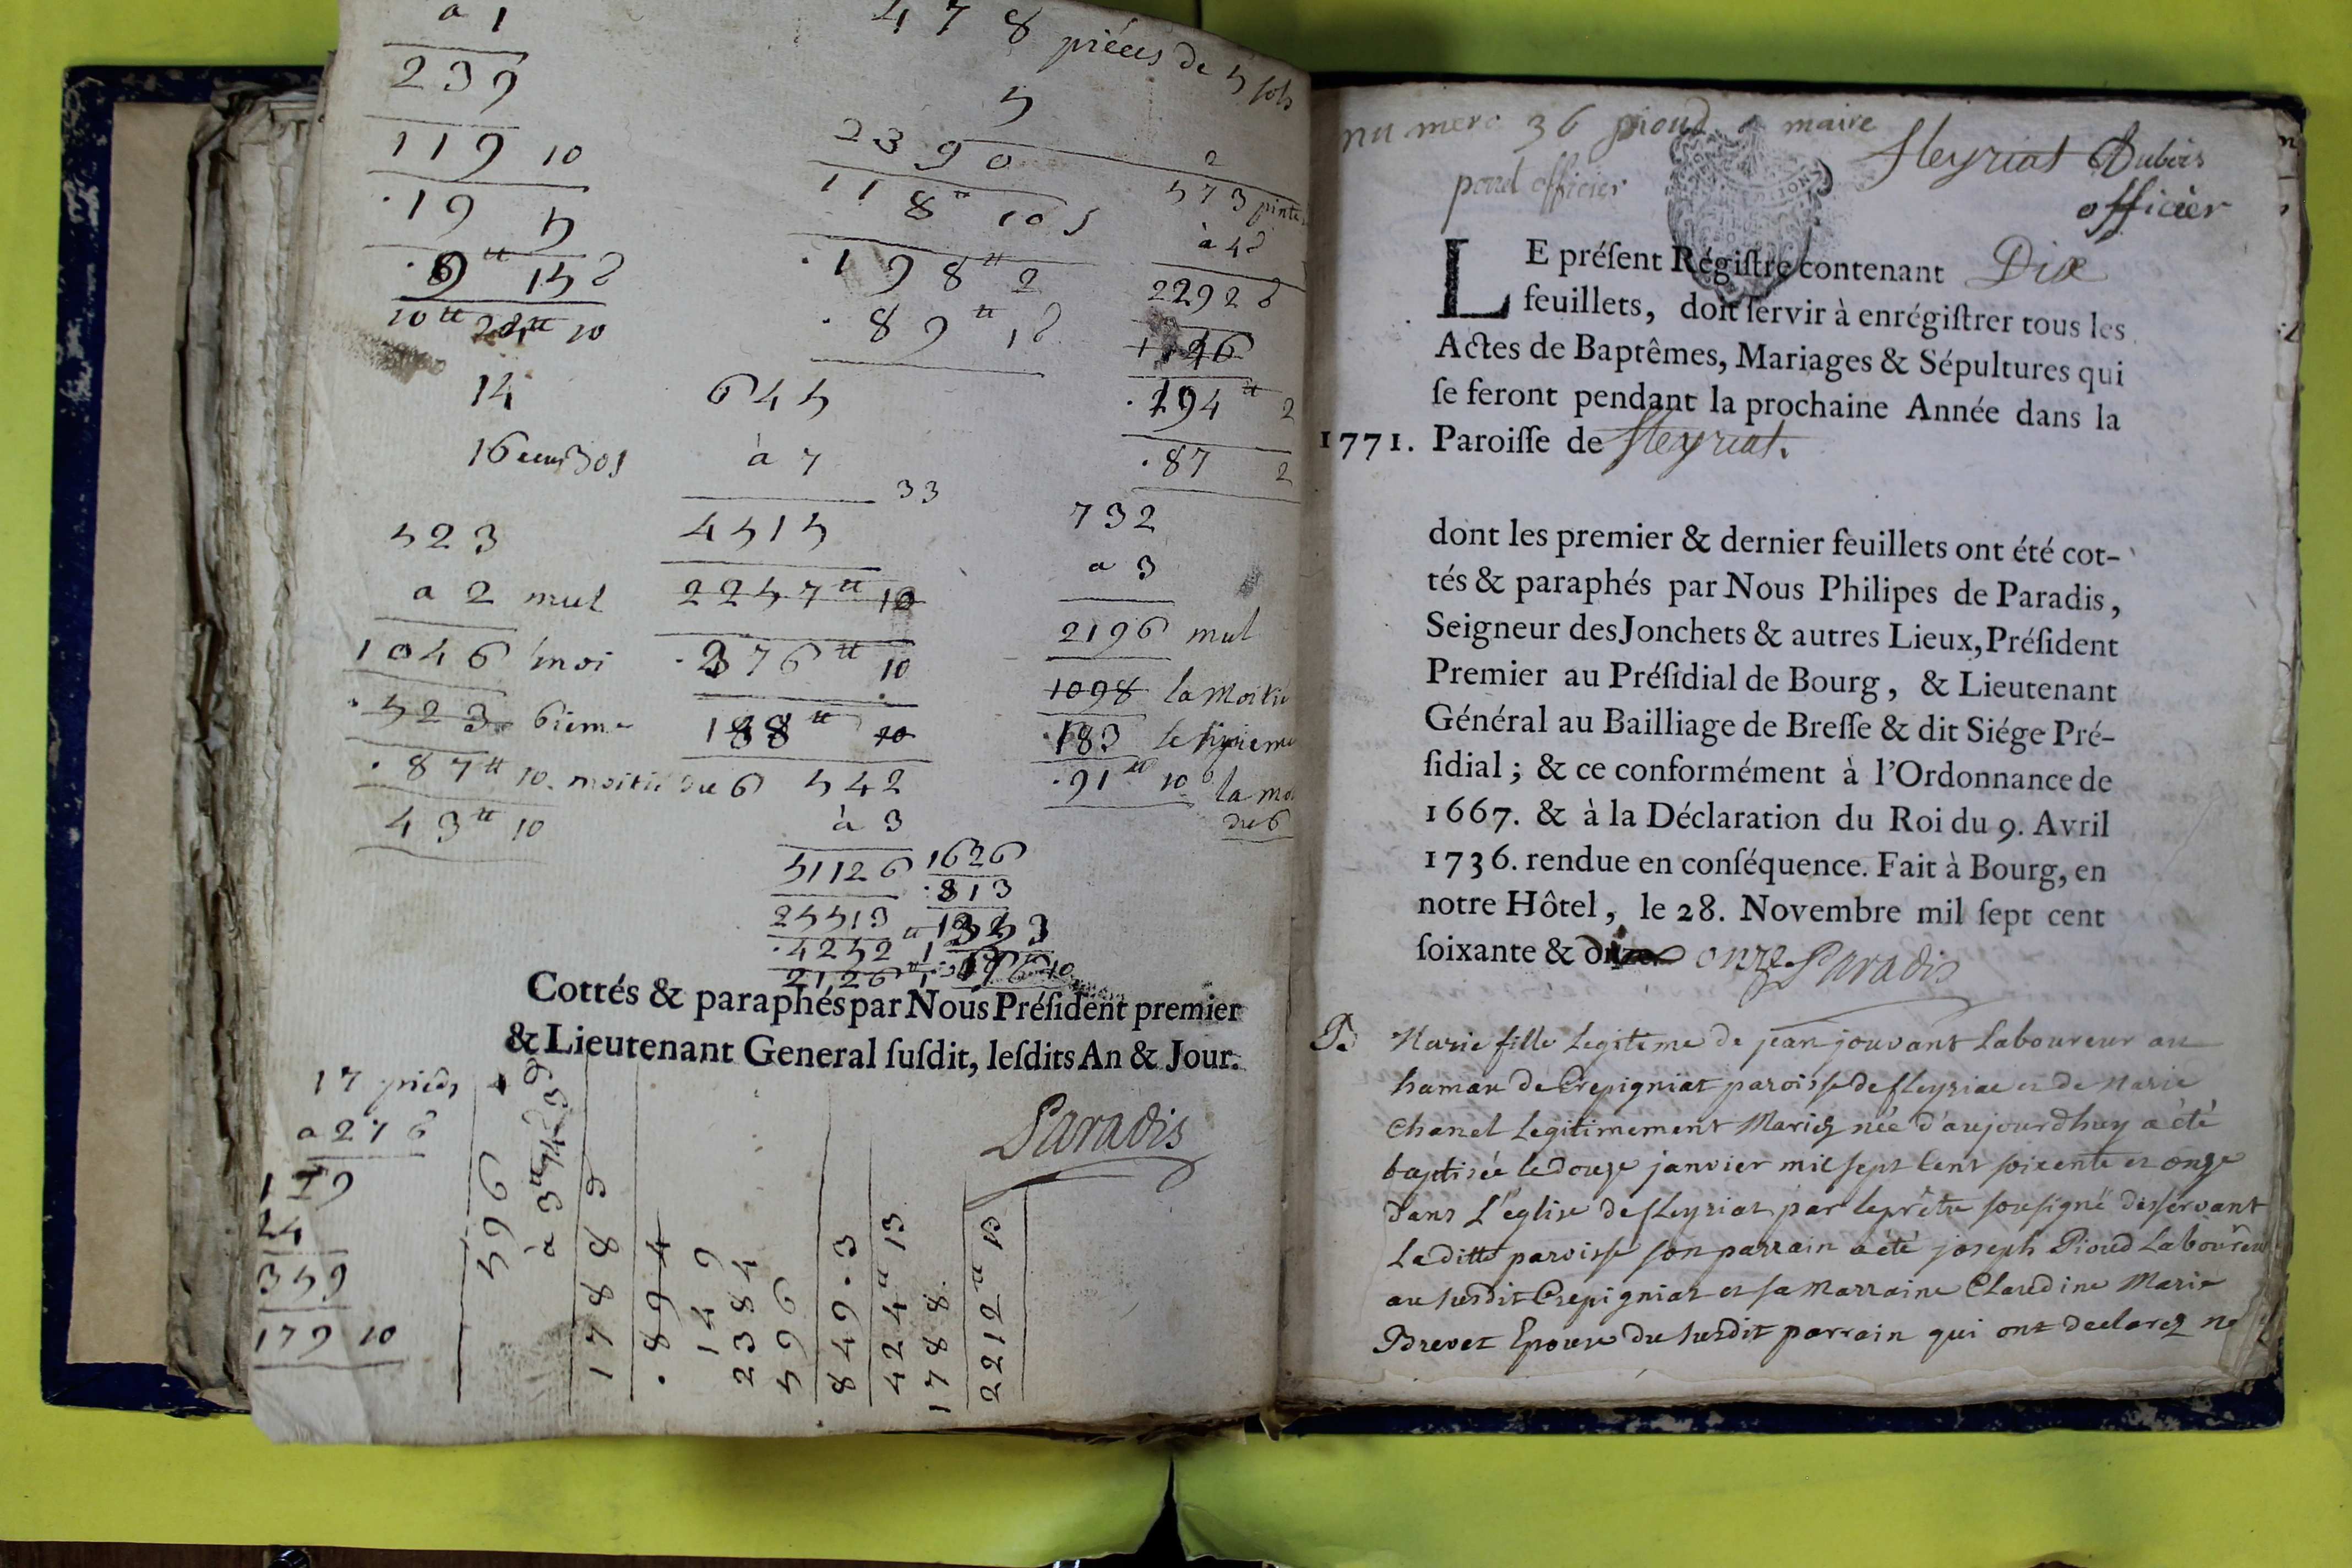 a 1
239
119 10
.19 5
.9 tt 15 d
10 tt 10
14
16 ecus 30 s
523
a 2 mul
1046 moi
.523 6ieme
.87 tt 10. moitié du 6
43 tt 10
478 pièces de 5 sols
5
2390
118 tt 10 s
.198 tt 2
.89 tt 1 d
645
à 7
33
4515
2257 tt 10
.376 tt 10
188 tt 10
542
à 3
51126
25513
.4252 tt 1
2126 tt 1
1626
.813
573 pinte
à 4 d
2292 d
1146
.194 tt 2
.87 2
732
a 3
2196 mul
1098 la moitié
.183 le sixieme
.91 tt 10 la mo
du 6
Cottés & paraphés par Nous Préſident premier
& Lieutenant General ſuſdit, leſdits An & Jour.
Paradis
17 pieds
a 276
24
359
179 10
596
1788
.894
149
2384
596
849.3
424 tt 13
1788.
2212 tt 13
numero 36 pioud maire
pond officier
fleyriat Dubois
officier
LE préſent Régiſtre contenant Dix
feuillets, doit ſervir à enrégiſtrer tous les
Actes de Baptêmes, Mariages & Sépultures qui
ſe feront pendant la prochaine Année dans la
1771. Paroiſſe de fleyriat.
dont les premier & dernier feuillets ont été cot-
tés & paraphés par Nous Philipes de Paradis,
Seigneur des Jonchets & autres Lieux, Préſident
Premier au Préſidial de Bourg, & Lieutenant
Général au Bailliage de Breſſe & dit Siége Pré-
ſidial; & ce conformément à l'Ordonnance de
1667. & à la Déclaration du Roi du 9. Avril
1736. rendue en conſéquence. Fait à Bourg, en
notre Hôtel, le 28. Novembre mil ſept cent
ſoixante & onze Paradis
B. Marie fille Legitime de jean jouvant Laboureur au
hamau de Crepigniat paroisse de fleyriat et de Marie
Chanel Legitimement Mariez née d'aujourdhuy a été
baptisée le douze janvier mil sept cent soixente et onze
dans L'eglise de fleyriat par le prêtre sousigné desservant
Laditte paroisse son parrain a été joseph Pioud Laboureur
au susdit Crepigniat et sa Marraine Claudine Marie
Brevet Epouse du susdit parrain qui ont declarez ne